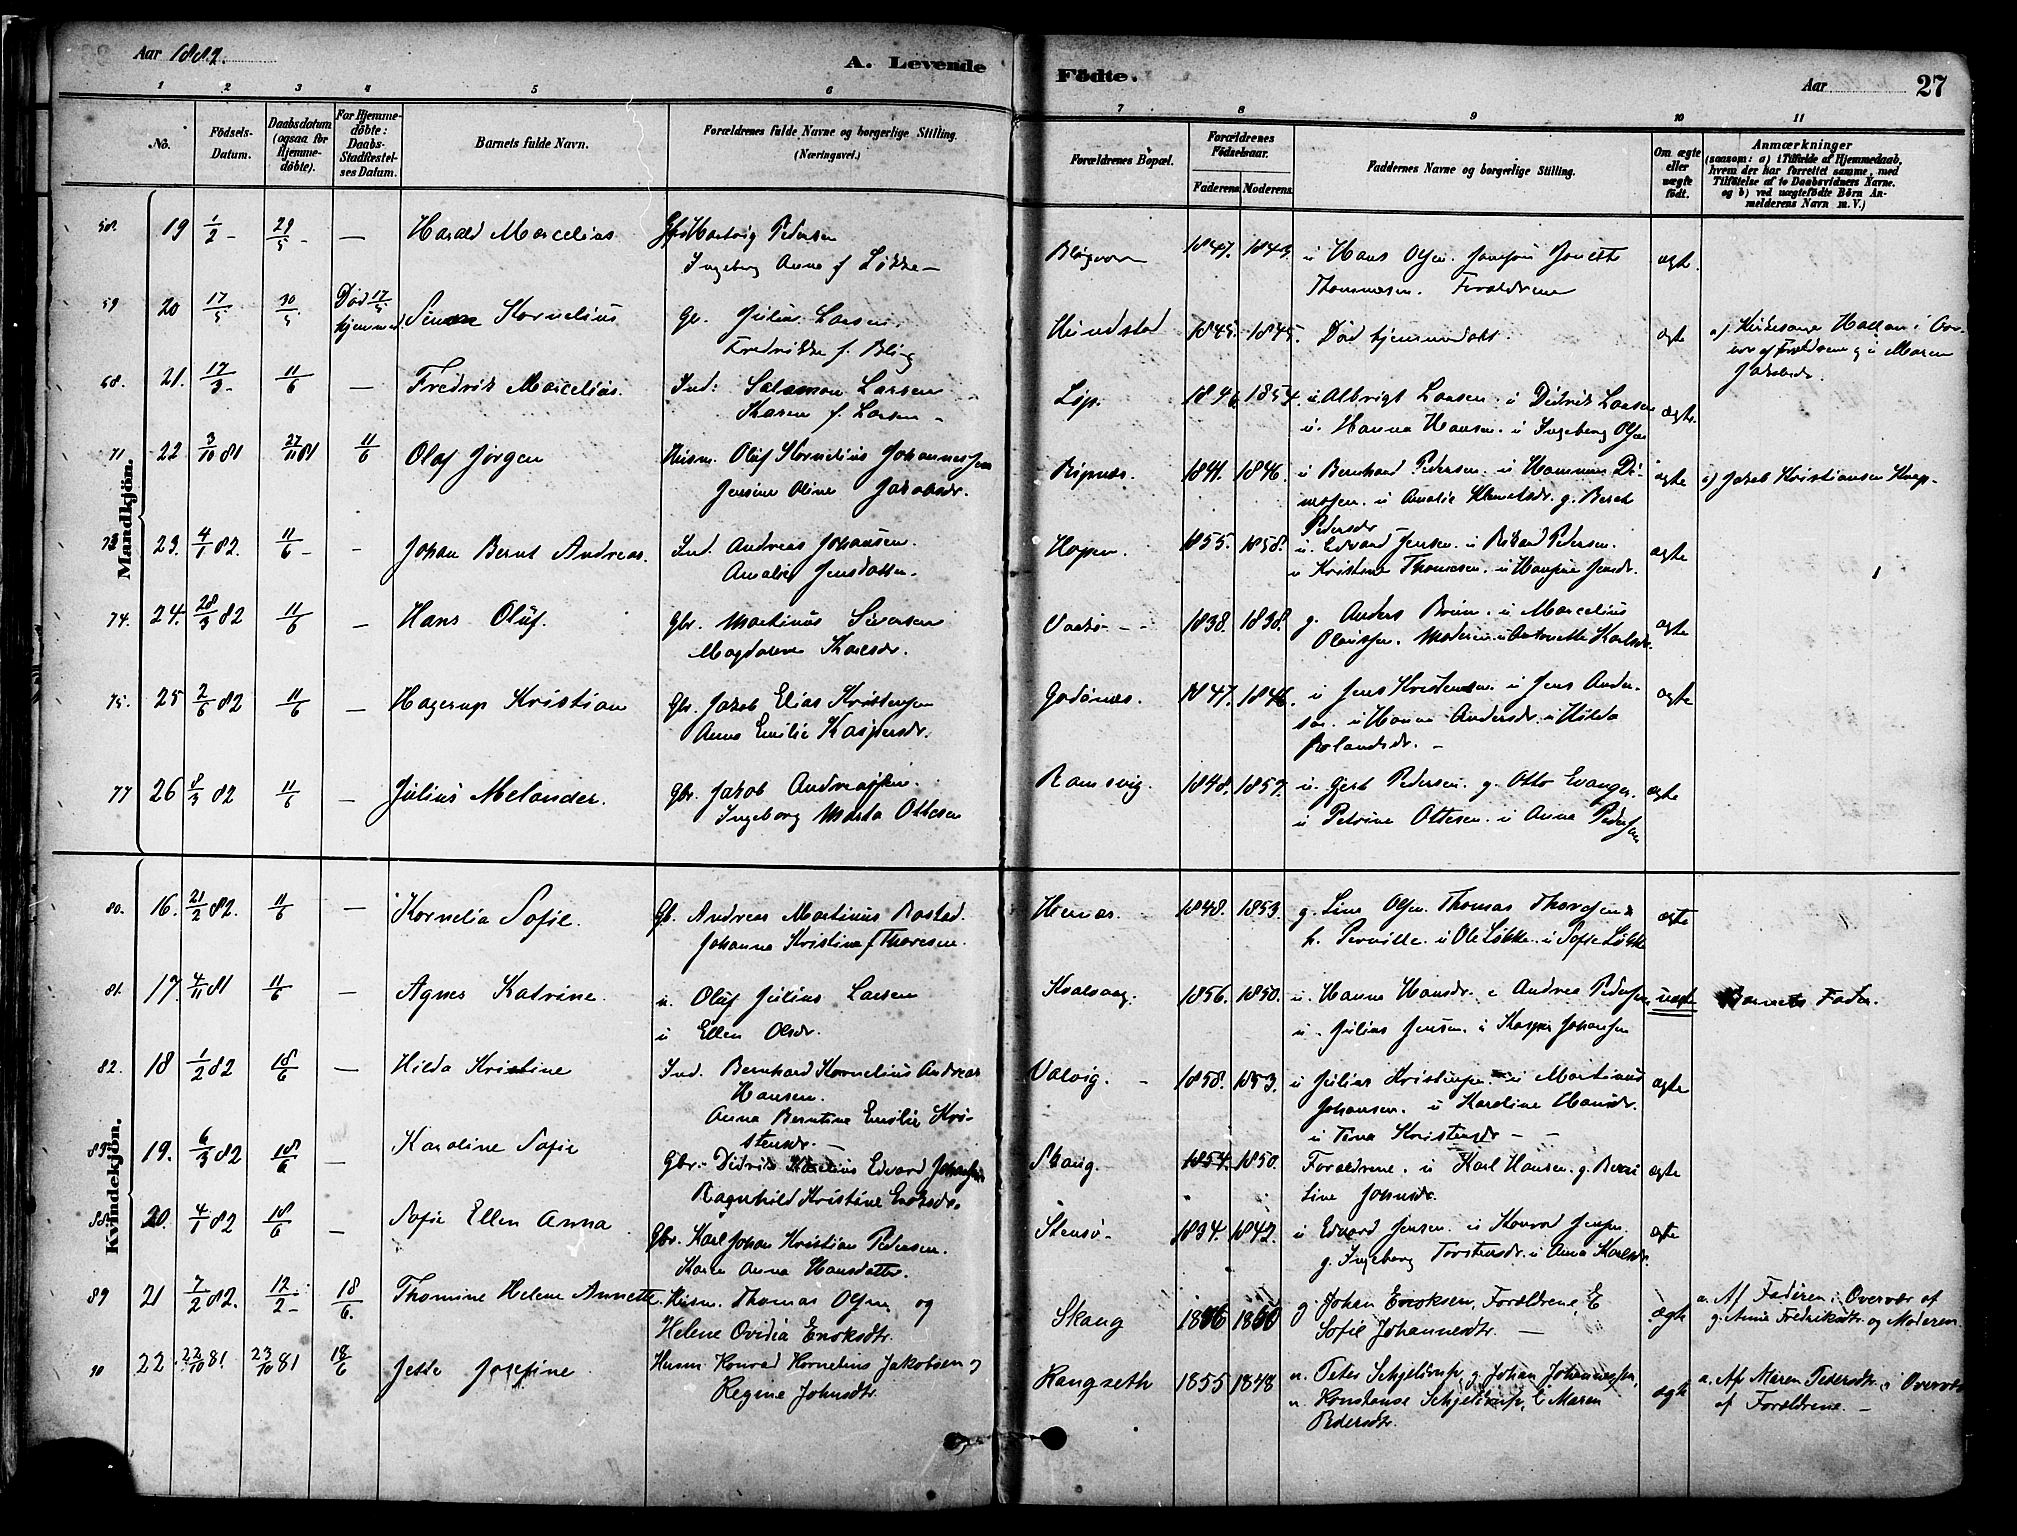 Aar 1882.
A. Levende
Födte.
Aar
27
1 2 3 4 5 6 7 8 9 10 11
No.
Födsels-
Datum.
Daabsdatum
(ogsaa for
Hjemme-
döbte).
For Hjemme-
döbte:
Daabs-
Stadfæstel-
ses Datum.
Barnets fulde Navn.
Forældrenes fulde Navne og borgerlige Stilling.
(Næringsvei.)
Forældrenes Bopæl.
Forældrenes
Födselsaar.
Faderens. Moderens.
Faddernes Navne og borgerlige Stilling.
Om ægte
eller
uægte
födt.
Anmærkninger
(saasom: a) i Tilfælde af Hjemmedaab,
hvem der har forrettet samme, med
Tilföielse af to Daabsvidners Navne.
og b) ved uægtefödte Börn An-
melderens Navn m. V.)
Mandkjön.
19 1/2 29/5 — Harald Marcelius Hartvig Pedersen
Ingeberg Anna f Løkke
1847. u Hans Olsen.
Thommesen. Forældrene
ægte.
59 20 17/5 30/5 Død 17/5
hjemmed. Kornelius Gb. Julius Larsen.
Fredrikke f. Bling
Hundstad 1845. 1845. Død hjemmedøbt. ægte
a) Kirkesanger i Over-
vær af Forældrene og u Maren
21. 17/3 11/6 — Fredrik Marcelius. Ind: Salamon Larsen
Karen f. Larsen
Løp. 1846 1854. u Albrigt Larsen. u Didrik Larsen
u. Hanna Hansen. u Ingeberg Olsen
ægte.
71 22 3/10 81 27/11 81 11/6 Olaf Jørgen Husm. Oluf Kornelius Johannessen
Jensine Oline Jakobsdr.
1841. 1846. u Bernhard Pedersen.
u Amalie g. Beret
Pedersdr
ægte a) Jakob Kristiansen
23. 4/1 82. 11/6 - Johan Bernt Andreas. Ind. Andreas Johansen.
Amalie Jensdatter.
Hopen. 1855. 1858. u. Edvard Jensen. u Rikard Pedersen.
u Kristine Thomesen.
ægte
74. 24. 28/3 82 11/6 — Hans Oluf. Gbr. Martinus Siversen
Magdalena Karlsdr.
1838. 1838. g. Anders Bruun. u Marcelius
Olaussen. Moderen. u Antonette Karlsdr.
ægte
75. 25 2/6 82 11/6 — Hagerup Kristian Gbr. Jakob Elias Kristensen
Anna Emilie Kaspersdr.
Godønæs. 1847. 1846. u Jens Kristensen. u Jens Ander-
sen. u Hanna Andersdr. u Hilda
Rolandsdr. —
ægte
77 26 8/3 82 11/6 — Julius Melander. Gbr. Jakob Andreassen.
Ingeborg Marta Ottesen
Ramsvig. 1848. 1857. u. Gjert Pedersen. g. Otto Evanger.
u Petrine Ottesen. u Anna Pedersen
ægte
Kvindekjön.
80. 16. 21/2 82. 11/6 — Kornelia Sofie. Gb. Andreas Martinus Rostad.
Johanna Kristina f Thoresen.
Hernæs. 1848. 1853. g. Line Olsen. Thomas Thoresen
h. Pernille. u Ole Løkke. u Sofie Løkke
ægte
81. 17. 4/11 81 11/6 — Agnes Katrine. u. Oluf Julius Larsen
u Ellen Olsdr.
Kvalvaag. 1856. 1850. u. Hanna Hansdr. Andrea Pedersen
u. Julius Jensen. u Kasper Johansen
uægte Barnets Fader.
82. 18 1/2 82 18/6 — Hilda Kristine Ind. Bernhard Kornelius Andreas
Hansen.
Anna Berntine Emilie Kri-
stensdr. —
Valvig. 1858. 1853. u Julius Kristensen. u Martinus
Johansen. u Karoline Hansdr.
u Tina Kristensdr —
ægte
19. 6/3 82 18/6 — Karoline Sofie Gbr. Didrik Edvard Johansen
Ragnhild Kristine Enoksdr.
Skaug. 1854. 1850. Forældrene. u Karl Hansen. g.
Line Johnsdr.
ægte
88. 20. 4/1 82 18/6 — Sofie Ellen Anna Gbr. Karl Johan Kristian Pedersen.
Karen Anna Hansdatter.
Stensø. 1834. 1842. u Edvard Jensen. u Konrad Jensen.
g. Ingeberg Torstensdr. u Anna Karlsdr.
ægte
89 21 7/2 82. 12/2 18/6. Thomine Helene Annette. Husm. Thomas Olsen og
Helene Ovidia Enoksdtr.
Skaug 1850 g Johan Enoksen, Forældrene, E
Sofie Johannesdtr. —
ægte a. Af Faderen i Overvær af
g. Anne Fredriksdtr. og Moderen.
90 22. 22/10 81. 23/10 81 18/6 Jette Josefine Husm Konrad Kornelius Jakobsen og
Regine Johnsdtr.
Hangseth 1855 1848 u. Peter Schjelderup, g Johan Johannessen,
u Konstanse Schjelderup, E Maren
Pedersdtr.
ægte a. Af Maren Pedersdtr. i Overvær
af Forældrene. —